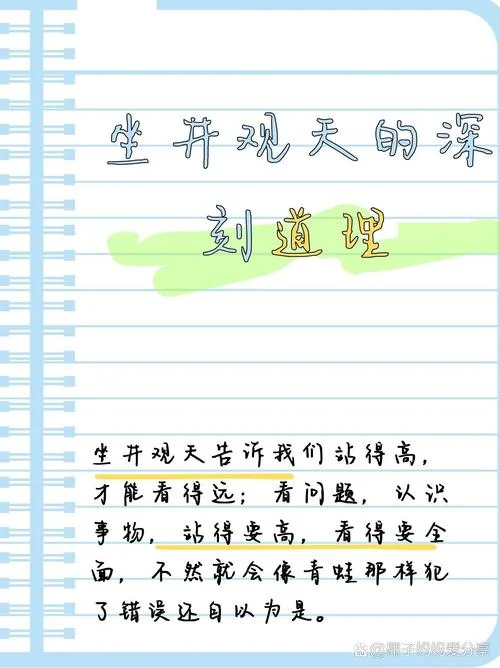 坐井观天的深
刻道理
坐井观天告诉我们站得高,
才能看得远；看问题，认识
事物，站得要高，看得要全
面，不然就会像青蛙那样犯
了错误还自以为是。
@椰子妈妈爱分享